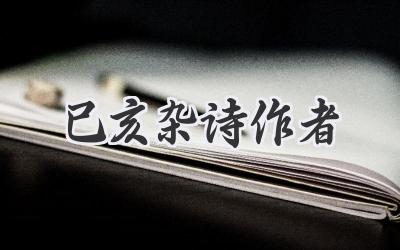 己亥杂诗作者